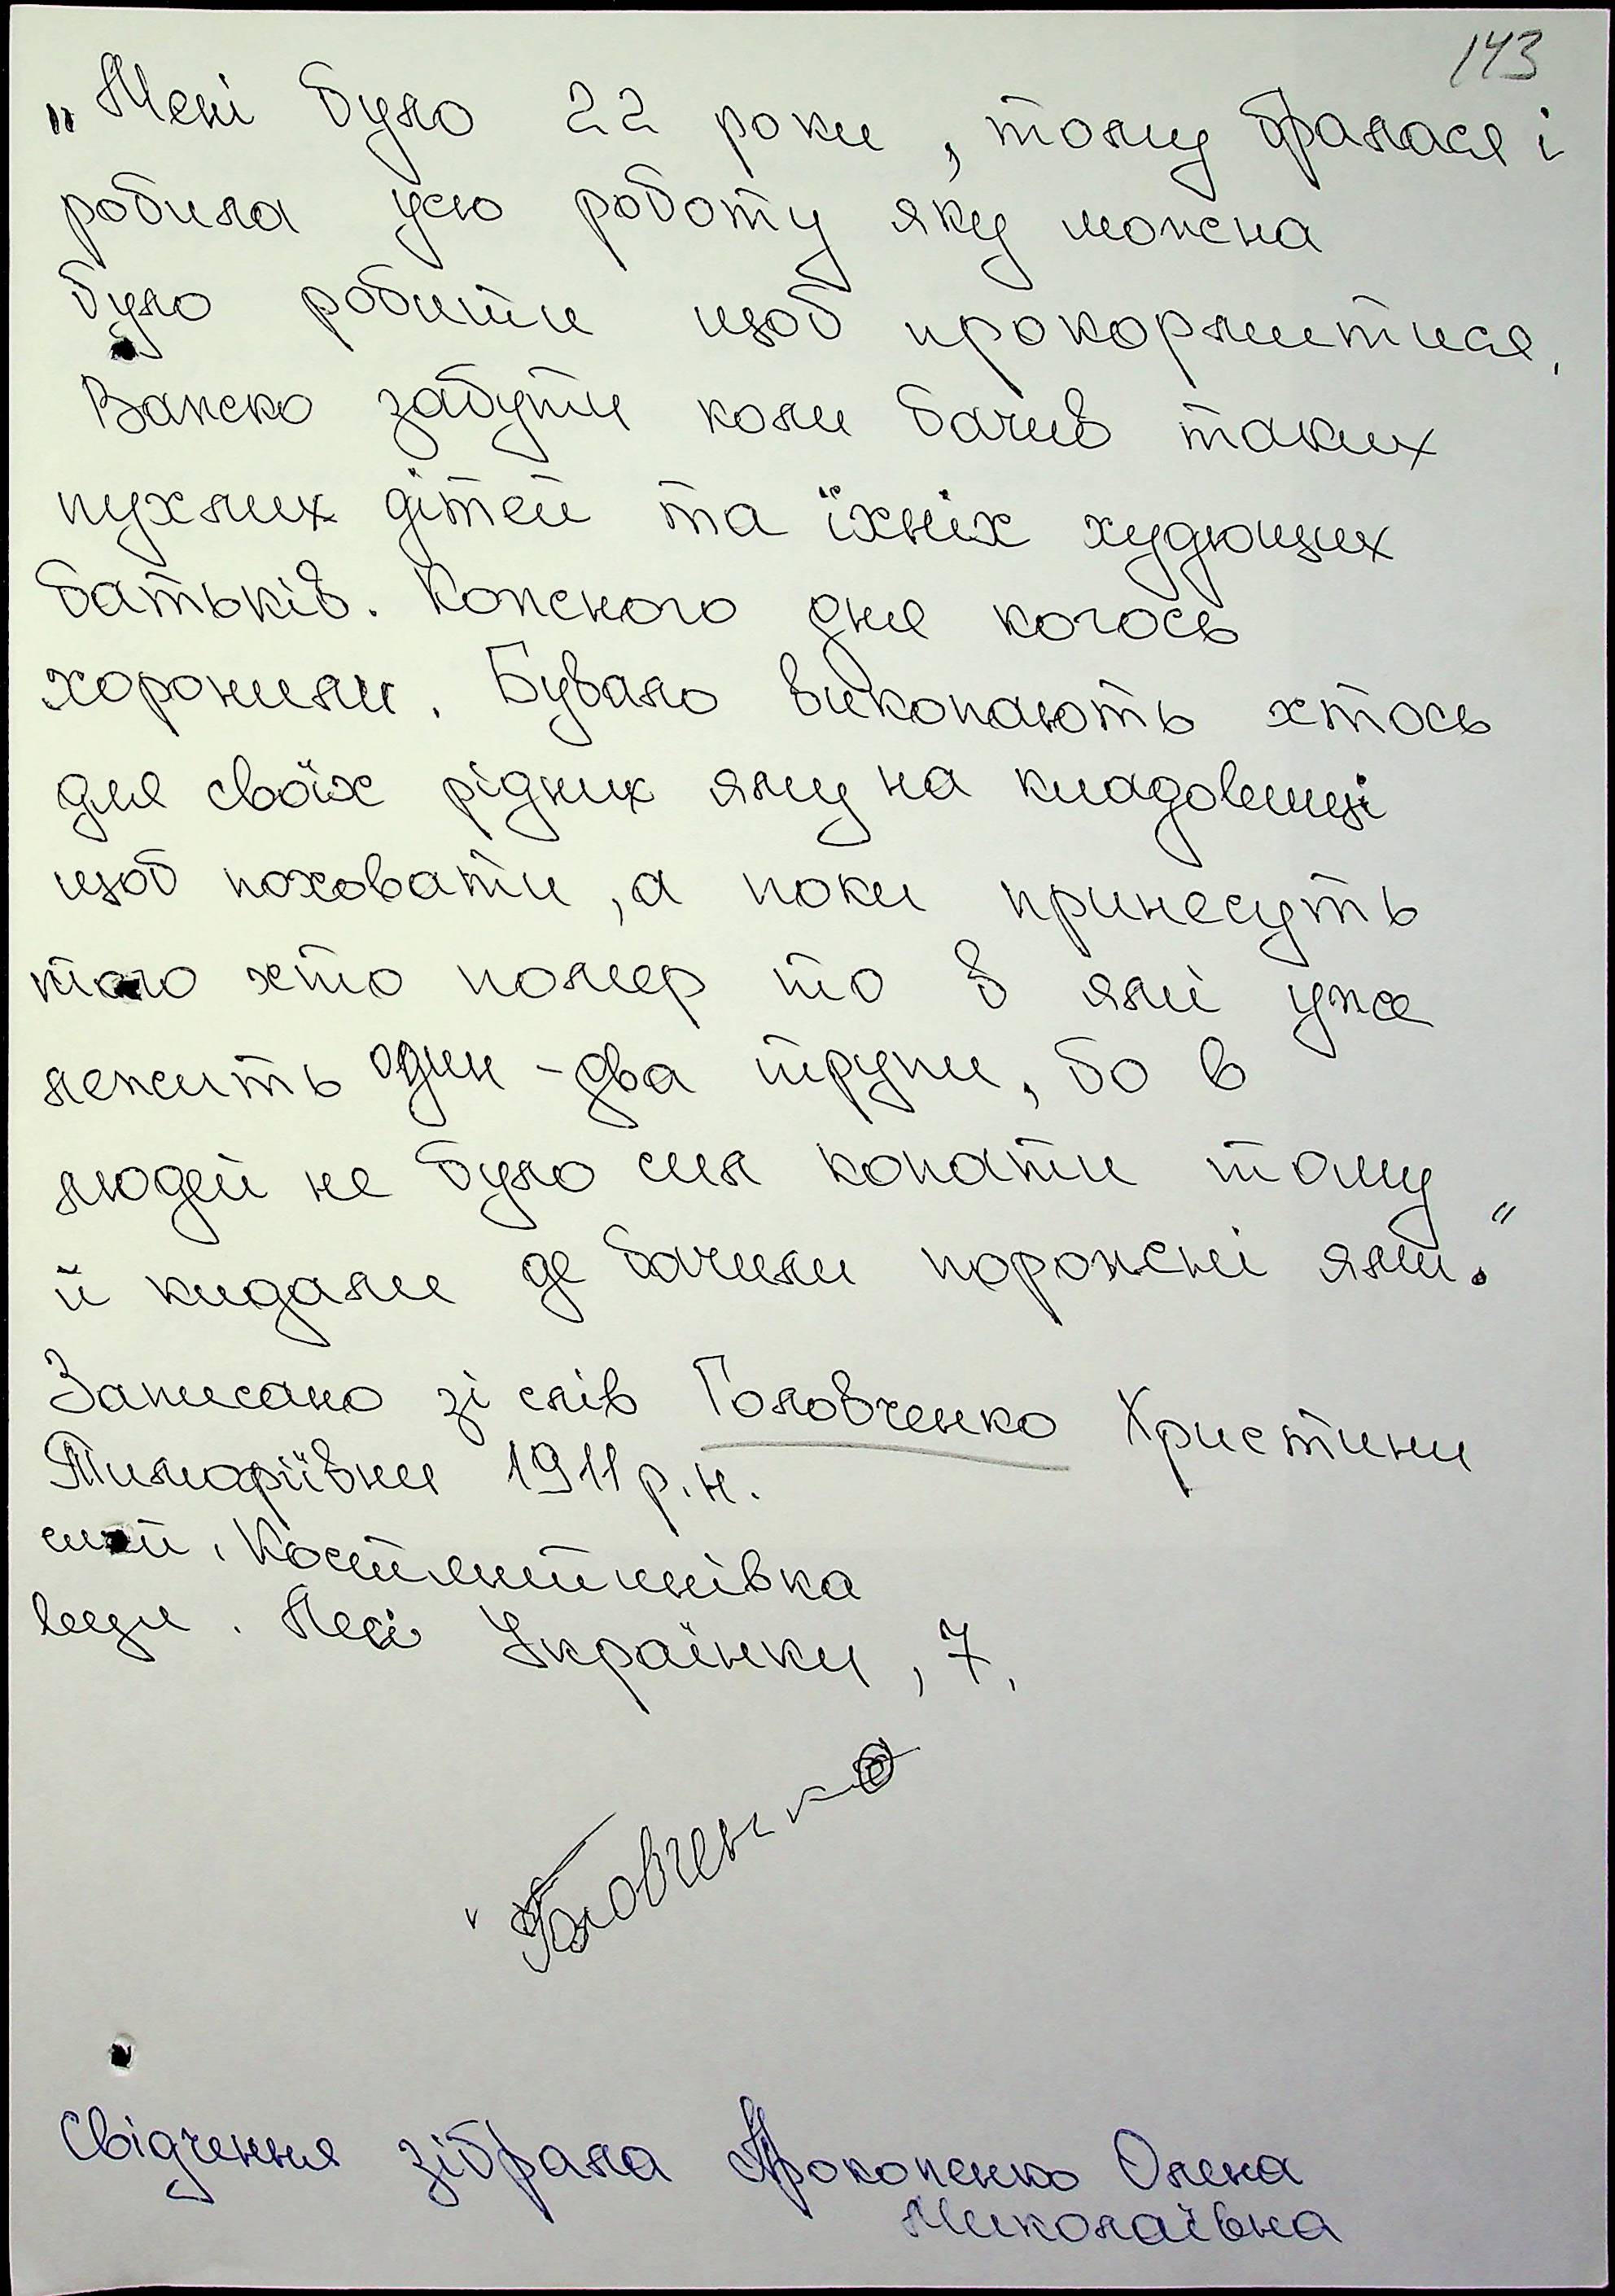 143
„Мені було 22 роки, тому бралася і
робила усю роботу яку можна
було робити щоб прокормитися.
Важко забути коли бачив таких
пухлих дітей та їхніх худющих
батьків. Кожного дня когось
хоронили. Бувало викопають хтось
для своїх рідних яму на кладовищі
щоб поховати, а поки принесуть
того хто помер то в ямі уже
лежить один-два трупи, бо в
людей не було сил копати тому
й кидали де бачили порожні ями."
Записано зі слів Головченко Христини
Тимофіївни 1911 р.н.
смт. Костянтинівка
вул. Лесі Українки, 7.
Головченко
Свідчення зібрала Прокопенко Олена
Миколаївна